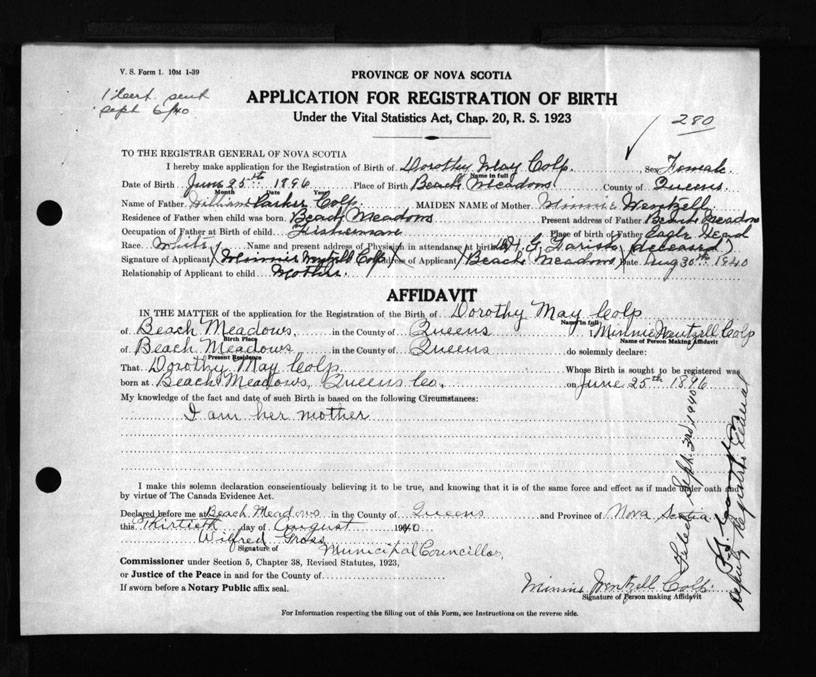 V. S. Form 1. 10M 1-39
1 cert. sent
Sept 6/40
PROVINCE OF NOVA SCOTIA
APPLICATION FOR REGISTRATION OF BIRTH
Under the Vital Statistics Act, Chap. 20, R. S. 1923
280
TO THE REGISTRAR GENERAL OF NOVA SCOTIA
I hereby make application for the Registration of Birth of Dorothy May Colp. Sex Female
Name in full
Date of Birth June 25th 1896 Place of Birth Beach Meadows County of Queens
Month Date Year
Name of Father William Parker Colp. MAIDEN NAME of Mother Minnie Wentzell
Residence of Father when child was born. Beach Meadows Present address of Father Beach Meadows
Occupation of Father at Birth of child Fisherman Place of birth of Father Eagle Head
Race. White Name and present address of Physician in attendance at birth (deceased)
Signature of Applicant (Minnie Wentzell Colp) Address of Applicant (Beach Meadows) Date Aug 30th 1940
Relationship of Applicant to child Mother.
AFFIDAVIT
IN THE MATTER of the application for the Registration of the Birth of Dorothy May Colp
Name in full
of Beach Meadows, in the County of Queens I Minnie Wentzell Colp
Birth Place Name of Person Making Affidavit
of Beach Meadows in the County of Queens do solemnly declare:
Present Residence
That Dorothy May Colp Whose Birth is sought to be registered was
born at Beach Meadows, Queens Co. on June 25th 1896
My knowledge of the fact and date of such Birth is based on the following Circumstances:
I am her mother
I make this solemn declaration conscientiously believing it to be true, and knowing that it is of the same force and effect as if made under oath and
by virtue of The Canada Evidence Act.
Declared before me at Beach Meadows in the County of Queens and Province of Nova Scotia
this Thirtieth day of August 1940
Wilfred Gross
Signature of Municipal Councillor,
Commissioner under Section 5, Chapter 38, Revised Statutes, 1923,
or Justice of the Peace in and for the County of
If sworn before a Notary Public affix seal.
Minnie Wentzell Colp
Signature of Person making Affidavit
For Information respecting the filling out of this Form, see Instructions on the reverse side.
Filed Sept. 3rd 1940
Deputy Registrar General